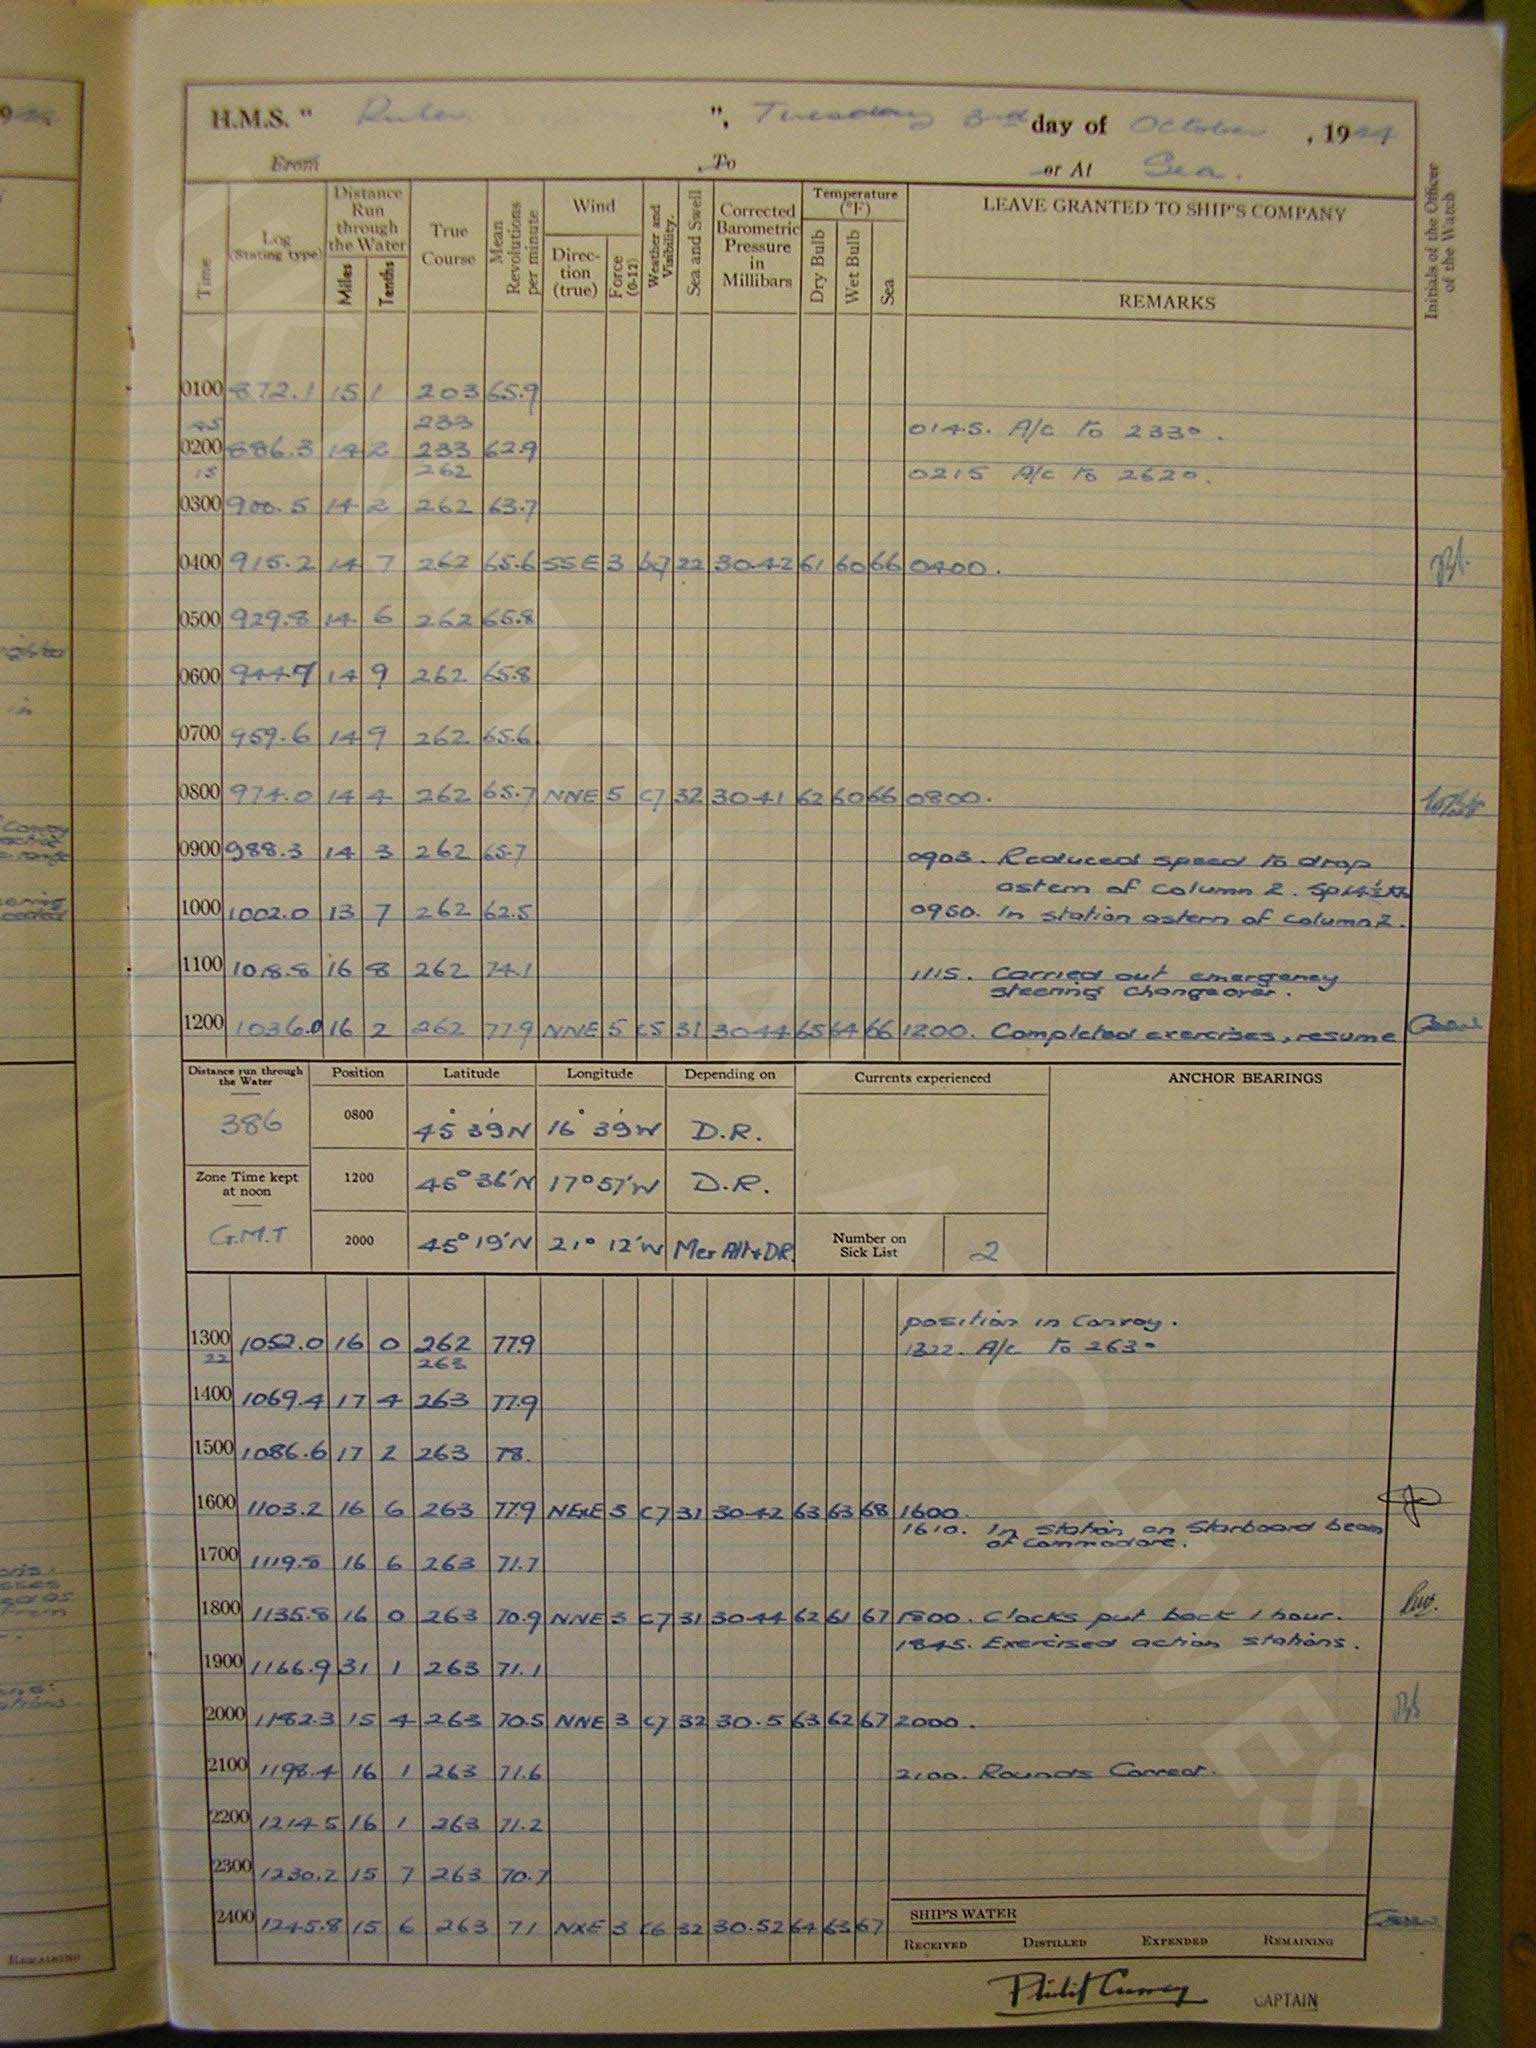 H.M.S. " Ruler ", Tuesday 3rd day of October, 1944
From To or At Sea.
Time
Log (Stating type)
Distance Run through the Water
Miles Tenths
True Course
Mean Revolutions per minute
Wind
Direction (true)
Force (0-12)
Weather and Visibility.
Sea and Swell
Corrected Barometric Pressure in Millibars
Temperature (°F)
Dry Bulb Wet Bulb Sea
LEAVE GRANTED TO SHIP'S COMPANY
REMARKS
Initials of the Officer of the Watch
0100 872.1 15 1 203 65.9
45 233 0145. A/c to 233°.
0200 886.3 14 2 233 62.9
15 262 0215 A/c to 262°.
0300 900.5 14 2 262 63.7
0400 915.2 14 7 262 65.6 SSE 3 bc7 22 30.42 61 60 66 0400.
0500 929.8 14 6 262 65.8
0600 944.7 14 9 262 65.8
0700 959.6 14 9 262 65.6
0800 974.0 14 4 262 65.7 NNE 5 C7 32 30.41 62 60 66 0800.
0900 988.3 14 3 262 65.7 0903. Reduced speed to drop
astern of column 2.
1000 1002.0 13 7 262 62.5 0950. In station astern of column 2.
1100 1018.8 16 8 262 74.1 1115. Carried out emergency
steering changeover.
1200 1036.0 16 2 262 77.9 NNE 5 C5 31 30.44 65 64 66 1200. Completed exercises, resume
Distance run through the Water
386
Zone Time kept at noon
G.M.T
Position Latitude Longitude Depending on
0800 45° 39'N 16° 39'W D.R.
1200 45° 36'N 17° 57'W D.R.
2000 45° 19'N 21° 12'W Mer Alt + DR.
Currents experienced
Number on Sick List 2
ANCHOR BEARINGS
position in Convoy.
1300 1052.0 16 0 262 77.9
22 263 1322. A/c to 263°
1400 1069.4 17 4 263 77.9
1500 1086.6 17 2 263 78.
1600 1103.2 16 6 263 77.9 NExE 5 C7 31 30.42 63 63 68 1600.
1610. In station on Starboard beam
of Commodore.
1700 1119.8 16 6 263 71.7
1800 1135.8 16 0 263 70.9 NNE 3 C7 31 30.44 62 61 67 1800. Clocks put back 1 hour.
1845. Exercised action stations.
1900 1166.9 31 1 263 71.1
2000 1182.3 15 4 263 70.5 NNE 3 C7 32 30.5 63 62 67 2000.
2100 1198.4 16 1 263 71.6 2100. Rounds Correct.
2200 1214.5 16 1 263 71.2
2300 1230.2 15 7 263 70.7
2400 1245.8 15 6 263 71 NXE 3 C6 32 30.52 64 63 67
SHIP'S WATER
RECEIVED DISTILLED EXPENDED REMAINING
CAPTAIN
REMAINING
NATIONAL ARCHIVES